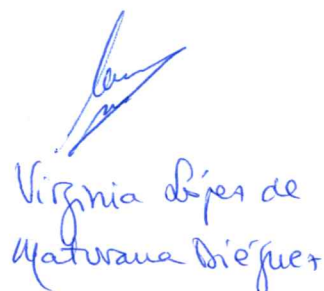 Virginia López de
Maturana Diéguez